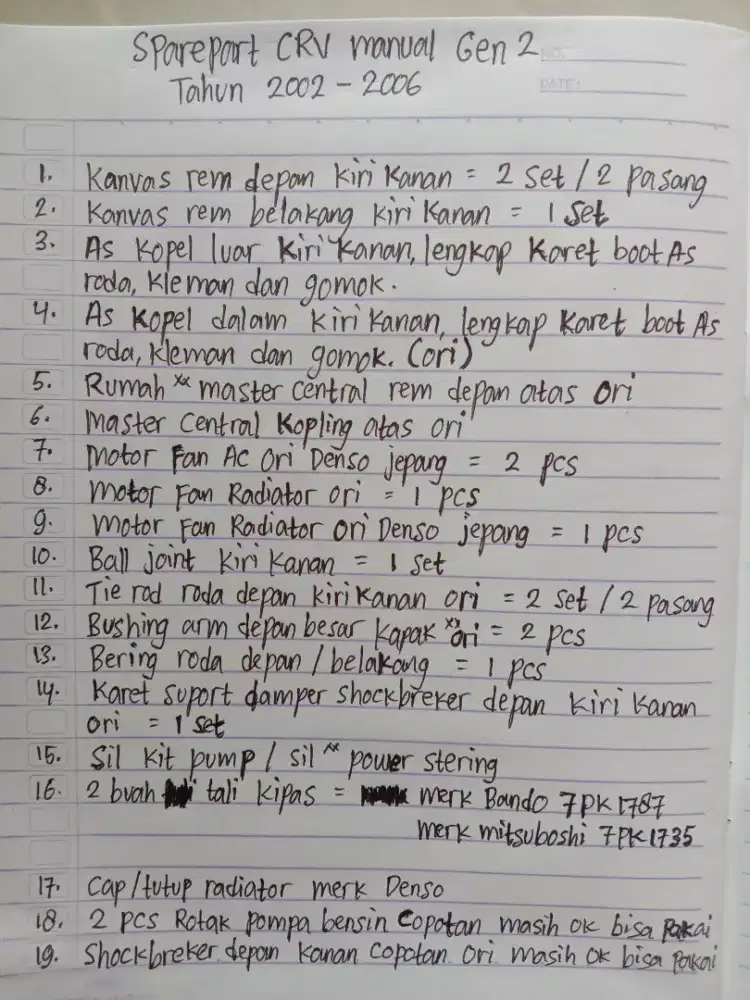 Sparepart CRV manual Gen 2
NO.:
Tahun 2002 - 2006
DATE:
1. Kanvas rem depan kiri kanan = 2 set / 2 pasang
2. Kanvas rem belakang kiri kanan = 1 set
3. As kopel luar kiri kanan, lengkap karet boot As
roda, kleman dan gomok.
4. As kopel dalam kiri kanan, lengkap karet boot As
roda, kleman dan gomok. (ori)
5. Rumah master central rem depan atas ori
6. Master central kopling atas ori
7. Motor Fan AC ori Denso jepang = 2 pcs
8. Motor Fan Radiator ori = 1 pcs
9. Motor Fan Radiator ori Denso jepang = 1 pcs
10. Ball joint kiri kanan = 1 set
11. Tie rod roda depan kiri kanan ori = 2 set / 2 pasang
12. Bushing arm depan besar kapak ori = 2 pcs
13. Bering roda depan / belakang = 1 pcs
14. Karet suport damper shockbreker depan kiri kanan
ori = 1 set
15. Sil kit pump / sil power stering
16. 2 buah tali kipas = merk Bando 7PK1787
merk mitsuboshi 7PK1735
17. Cap/tutup radiator merk Denso
18. 2 pcs Rotak pompa bensin copotan masih ok bisa pakai
19. Shockbreker depan kanan copotan ori masih ok bisa pakai